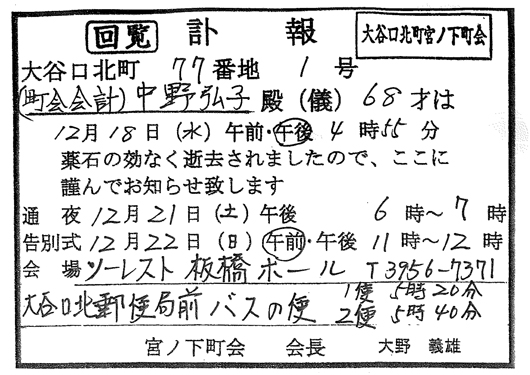 回覧 訃報 大谷口北町宮ノ下町会
大谷口北町 77番地 1号
(町会会計)中野弘子 殿(儀)68才は
12月18日(水)午前・午後 4時55分
薬石の効なく逝去されましたので、ここに
謹んでお知らせ致します
通夜 12月21日(土)午後 6時~7時
告別式 12月22日(日)午前・午後 11時~12時
会場 ソーレスト 板橋ホール T3956-7371
大谷口北郵便局前 バスの便 1便 5時20分
2便 5時40分
宮ノ下町会 会長 大野 義雄